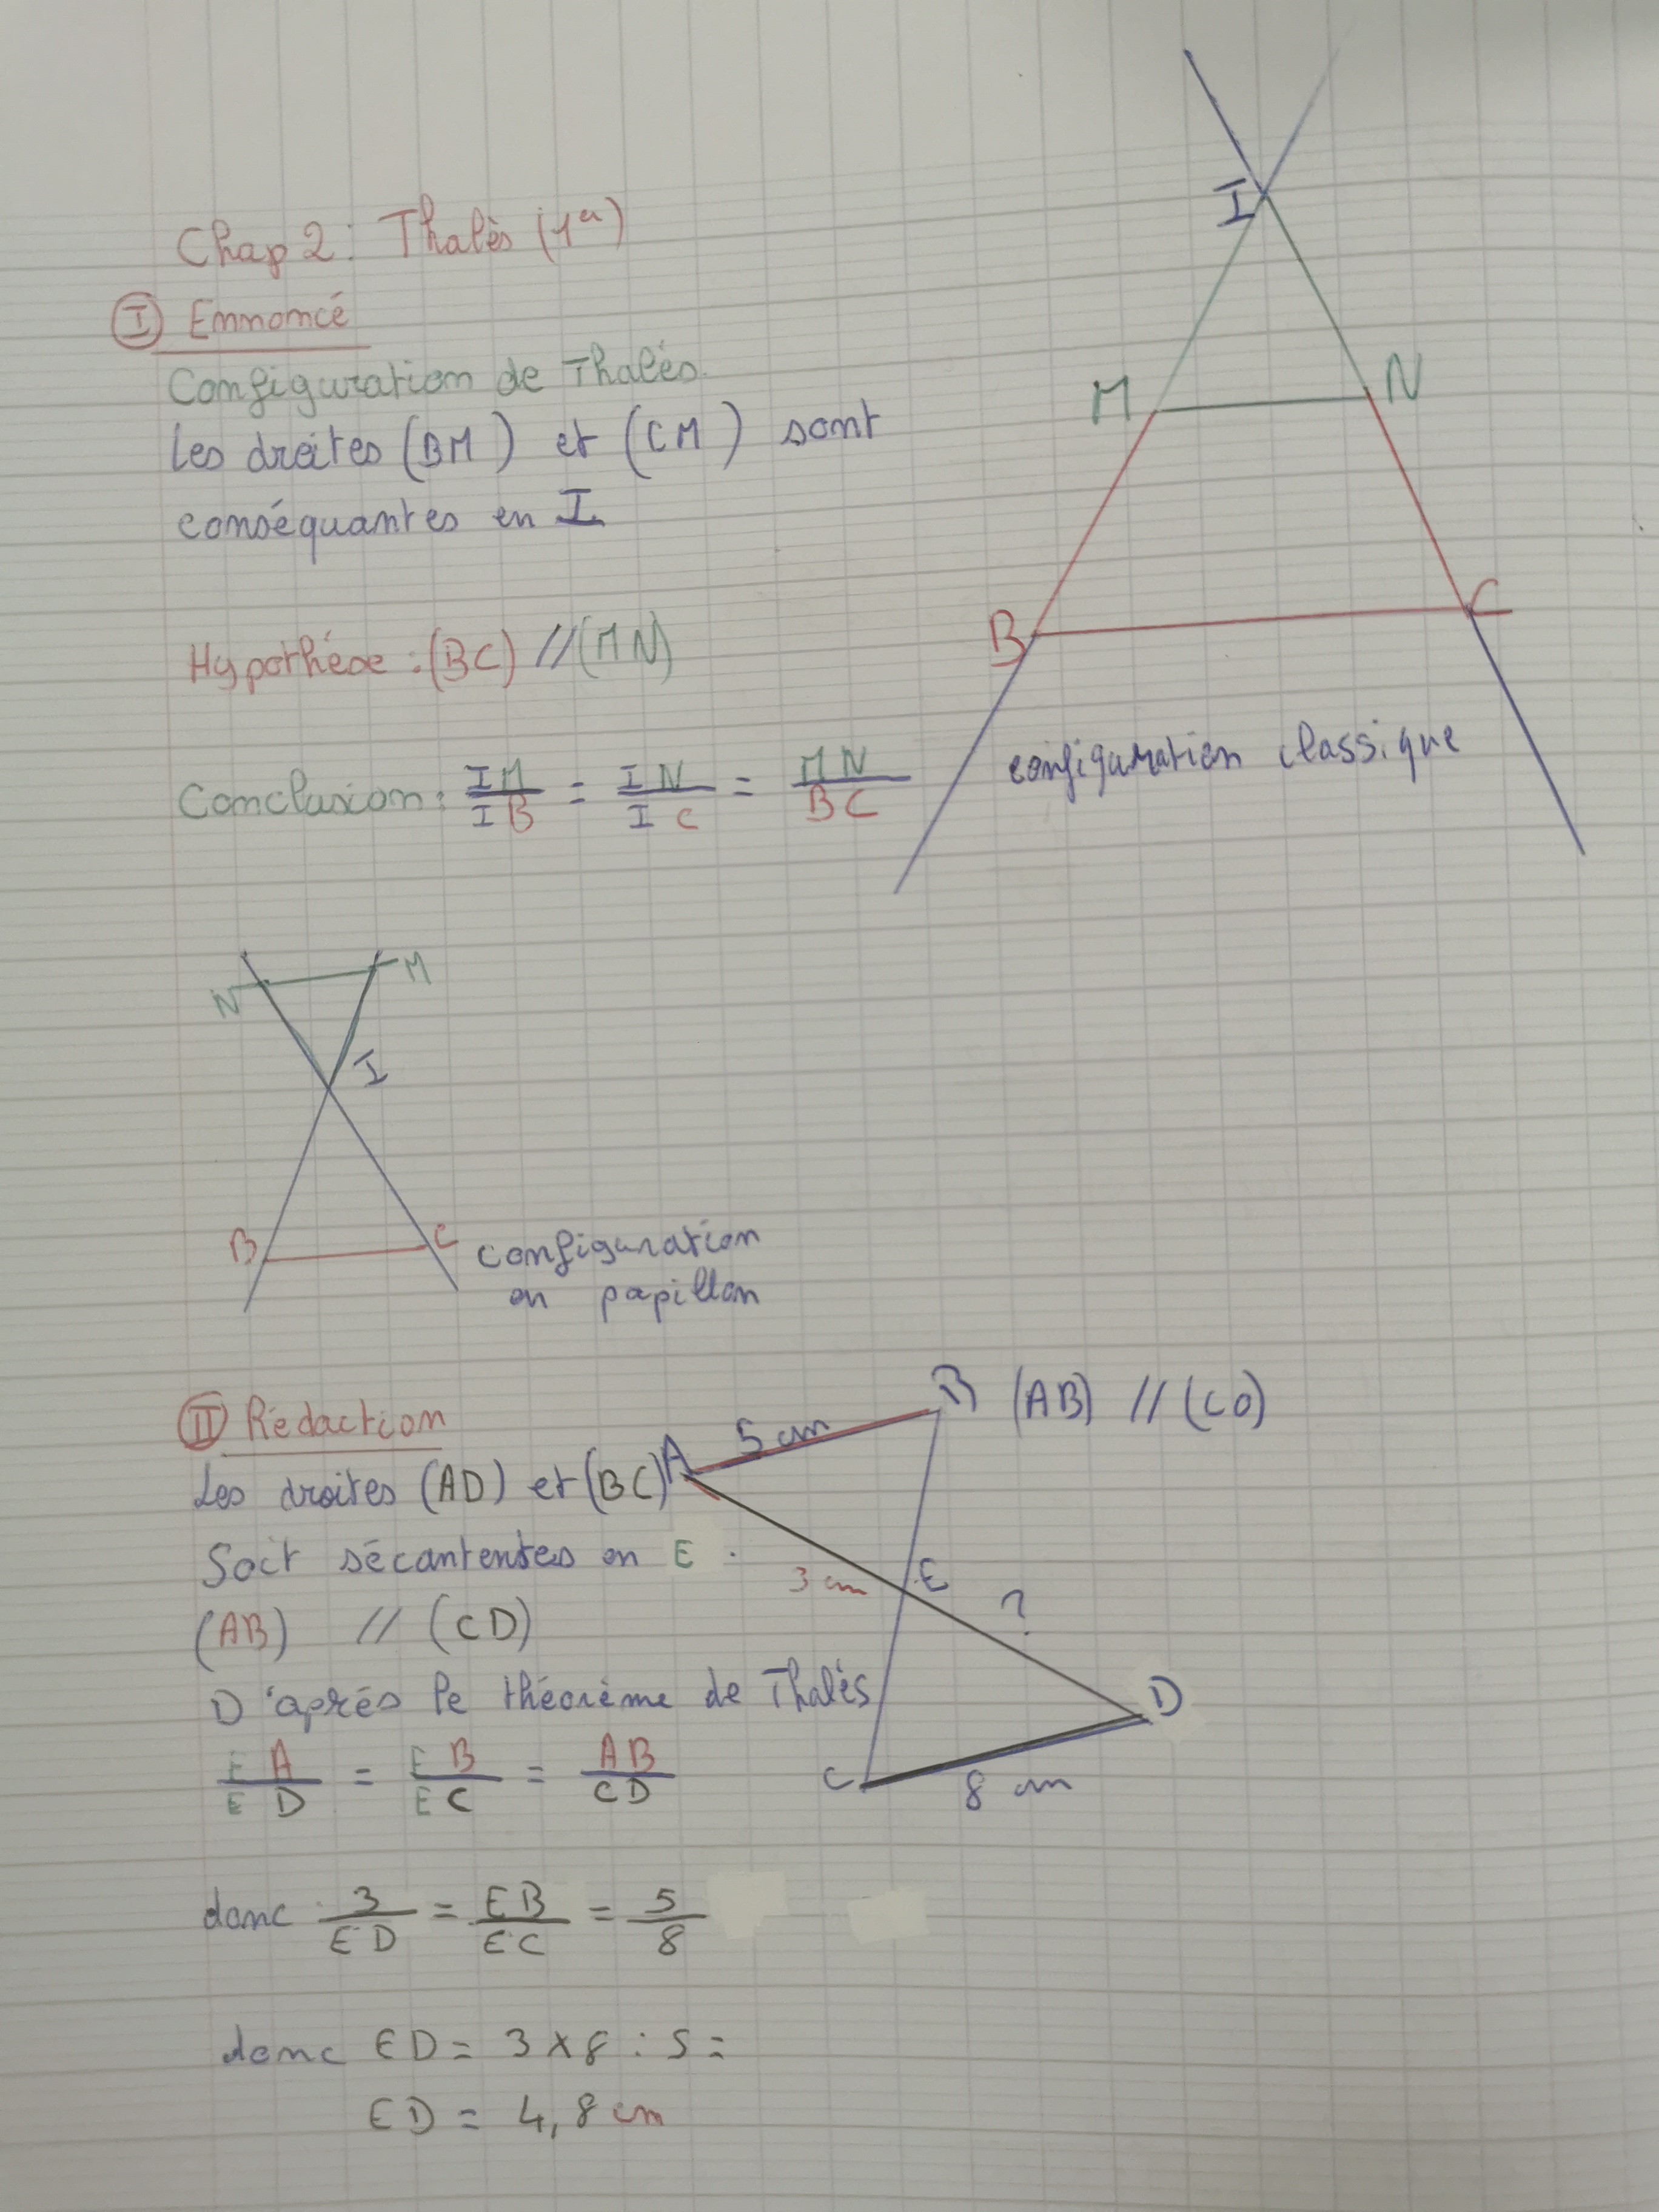 Chap 2 : Thalès (1er)
I Ennoncé
Configuration de Thalés.
Les droites (BM) et (CM) sont
conséquantes en I
Hypothése : (BC) // (MN)
Conclusion : IM/IB = IN/IC = MN/BC
I
M N
B C
configuration classique
N M
I
B C
configuration
en papillon
II Rédaction
Les droites (AD) et (BC)
Soit sécantentes en E .
(AB) // (CD)
D'aprés le théorème de Thalés
EA/ED = EB/EC = AB/CD
donc 3/ED = EB/EC = 5/8
donc ED = 3 x 8 : 5 =
ED = 4,8 cm
B (AB) // (CD)
A 5 cm
3 cm E ?
D
C 8 cm